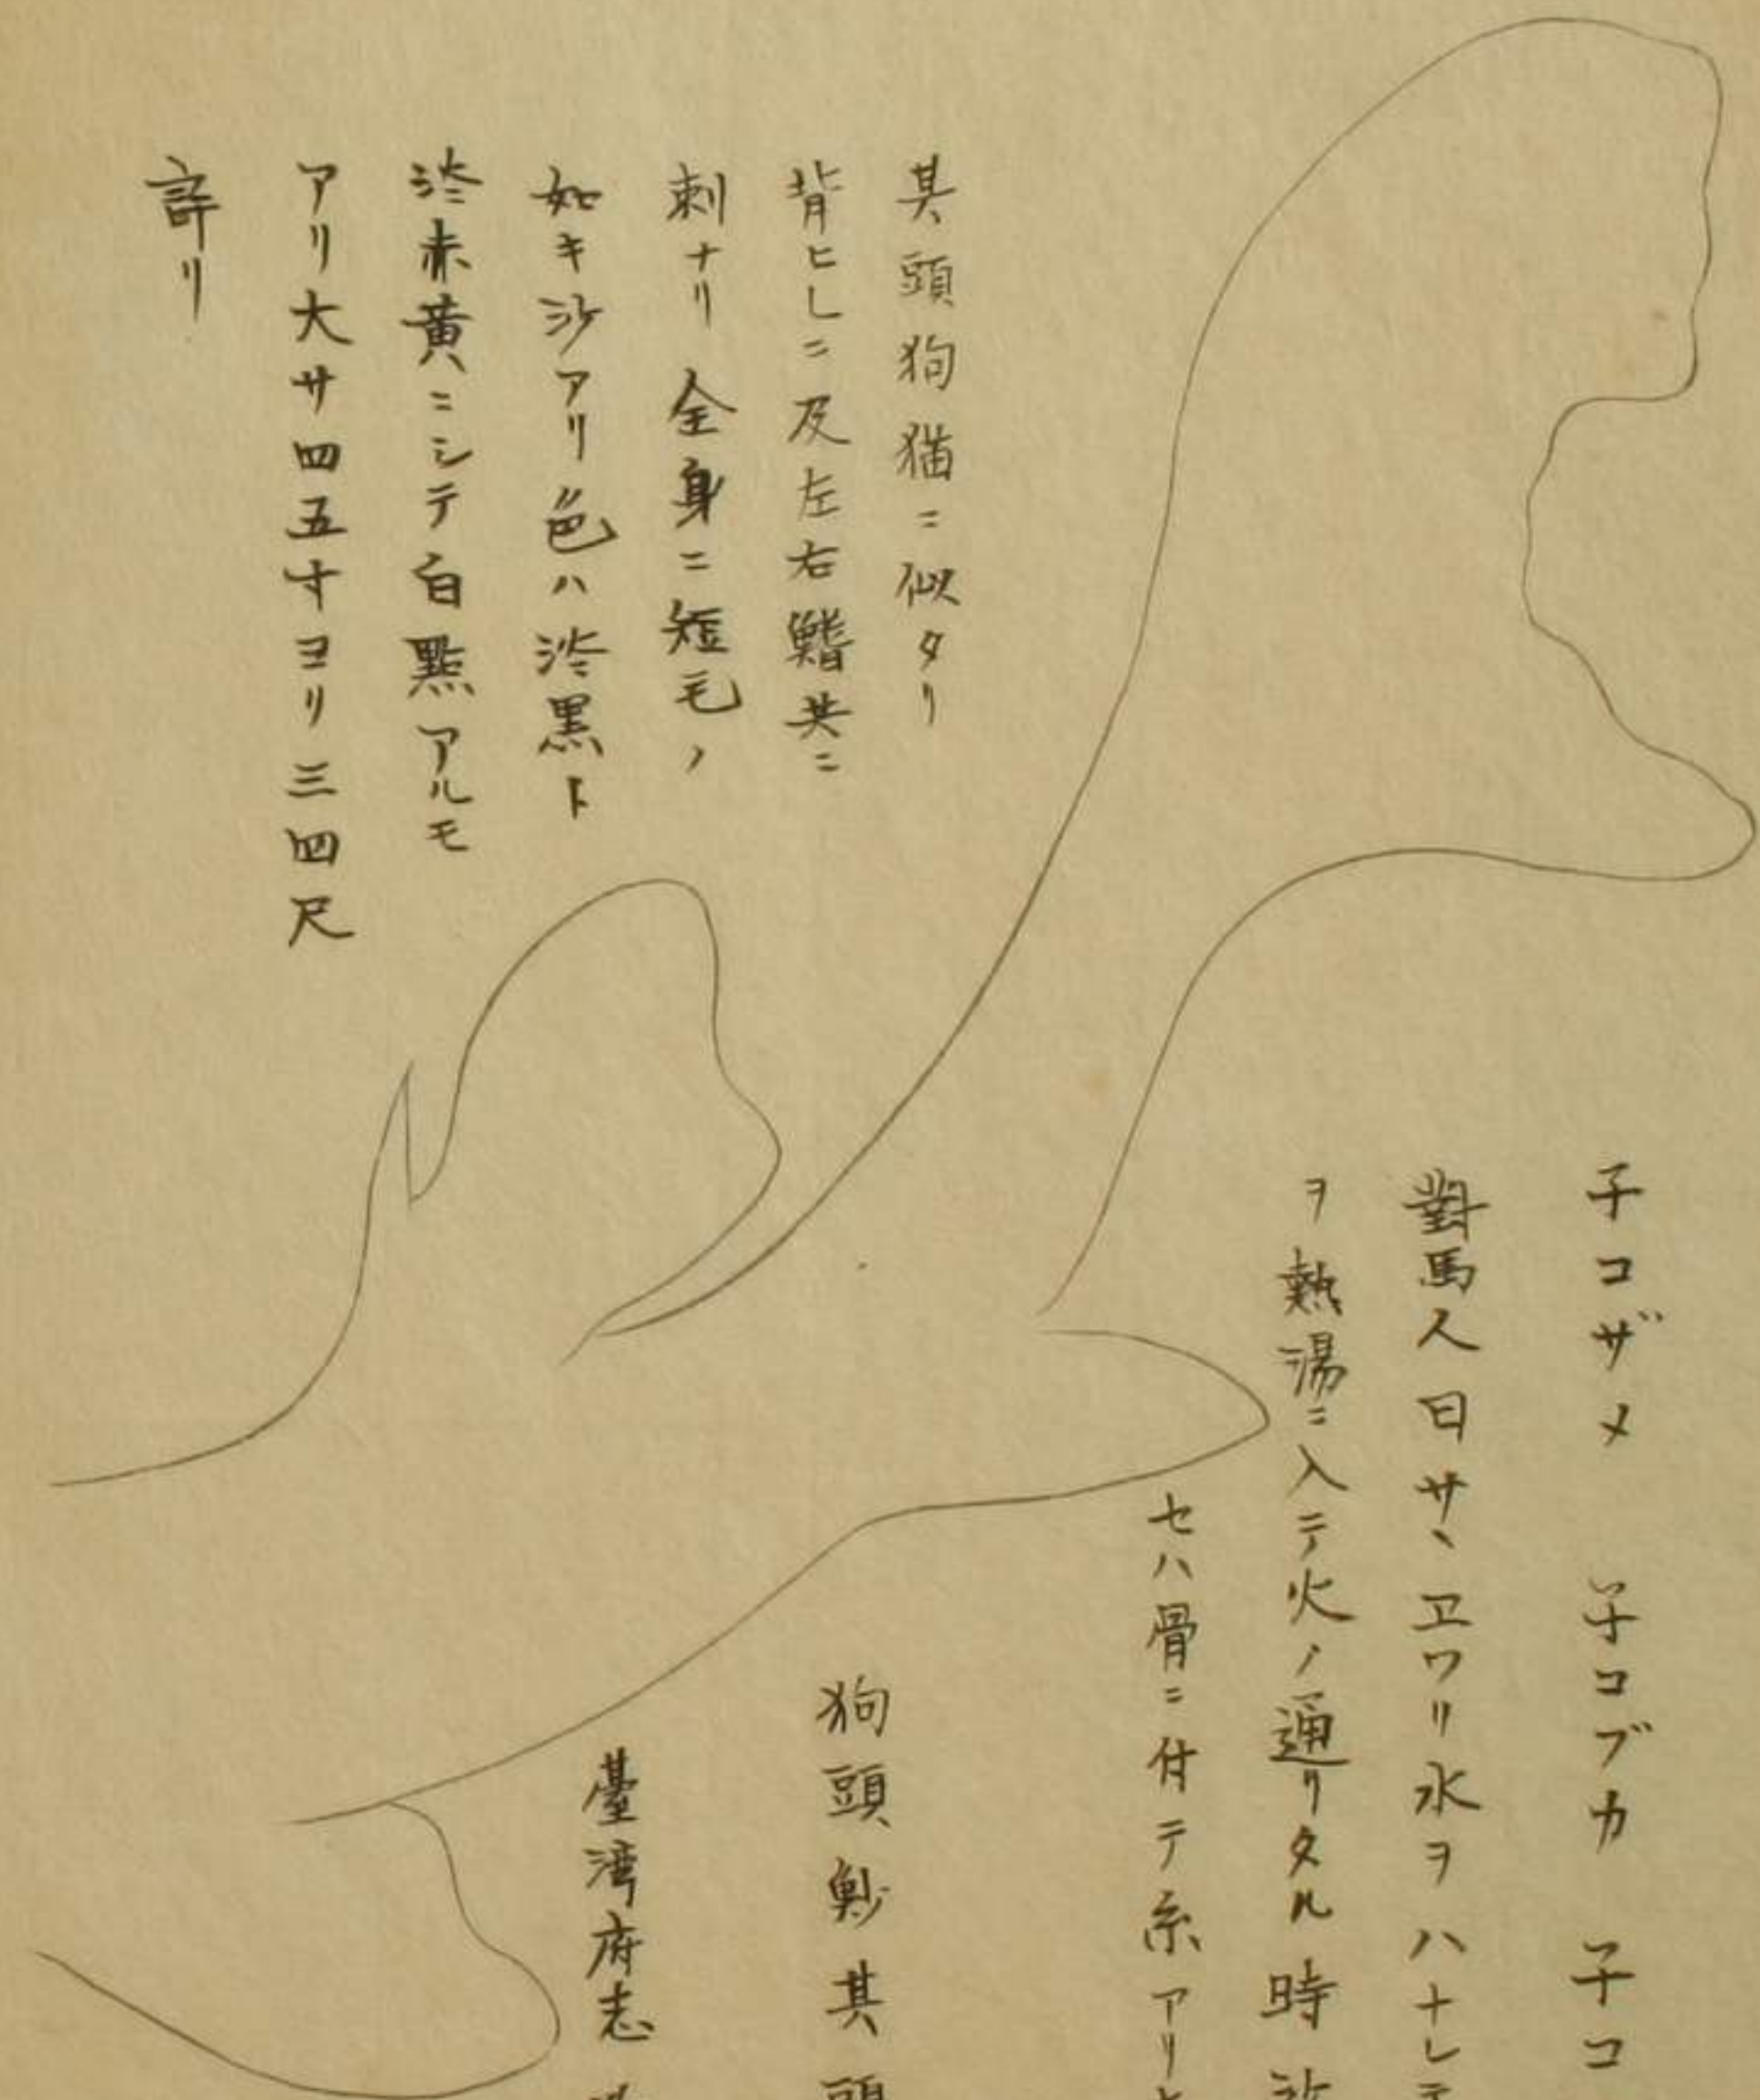 子コザメ 子コブカ 子コ
對馬人曰サヽヱワリ水ヲハナレテ
ヲ熱湯ニ入テ火ノ通リタル時
セハ骨ニ付テ糸アリ
狗頭魦其頭
臺湾府志
其頭狗猫ニ似タリ
背ヒレニ及左右鰭共ニ
刺ナリ全身ニ短毛ノ
如キ沙アリ色ハ淡黒ト
淡赤黄ニシテ白點アルモ
アリ大サ四五寸ヨリ三四尺
許リ